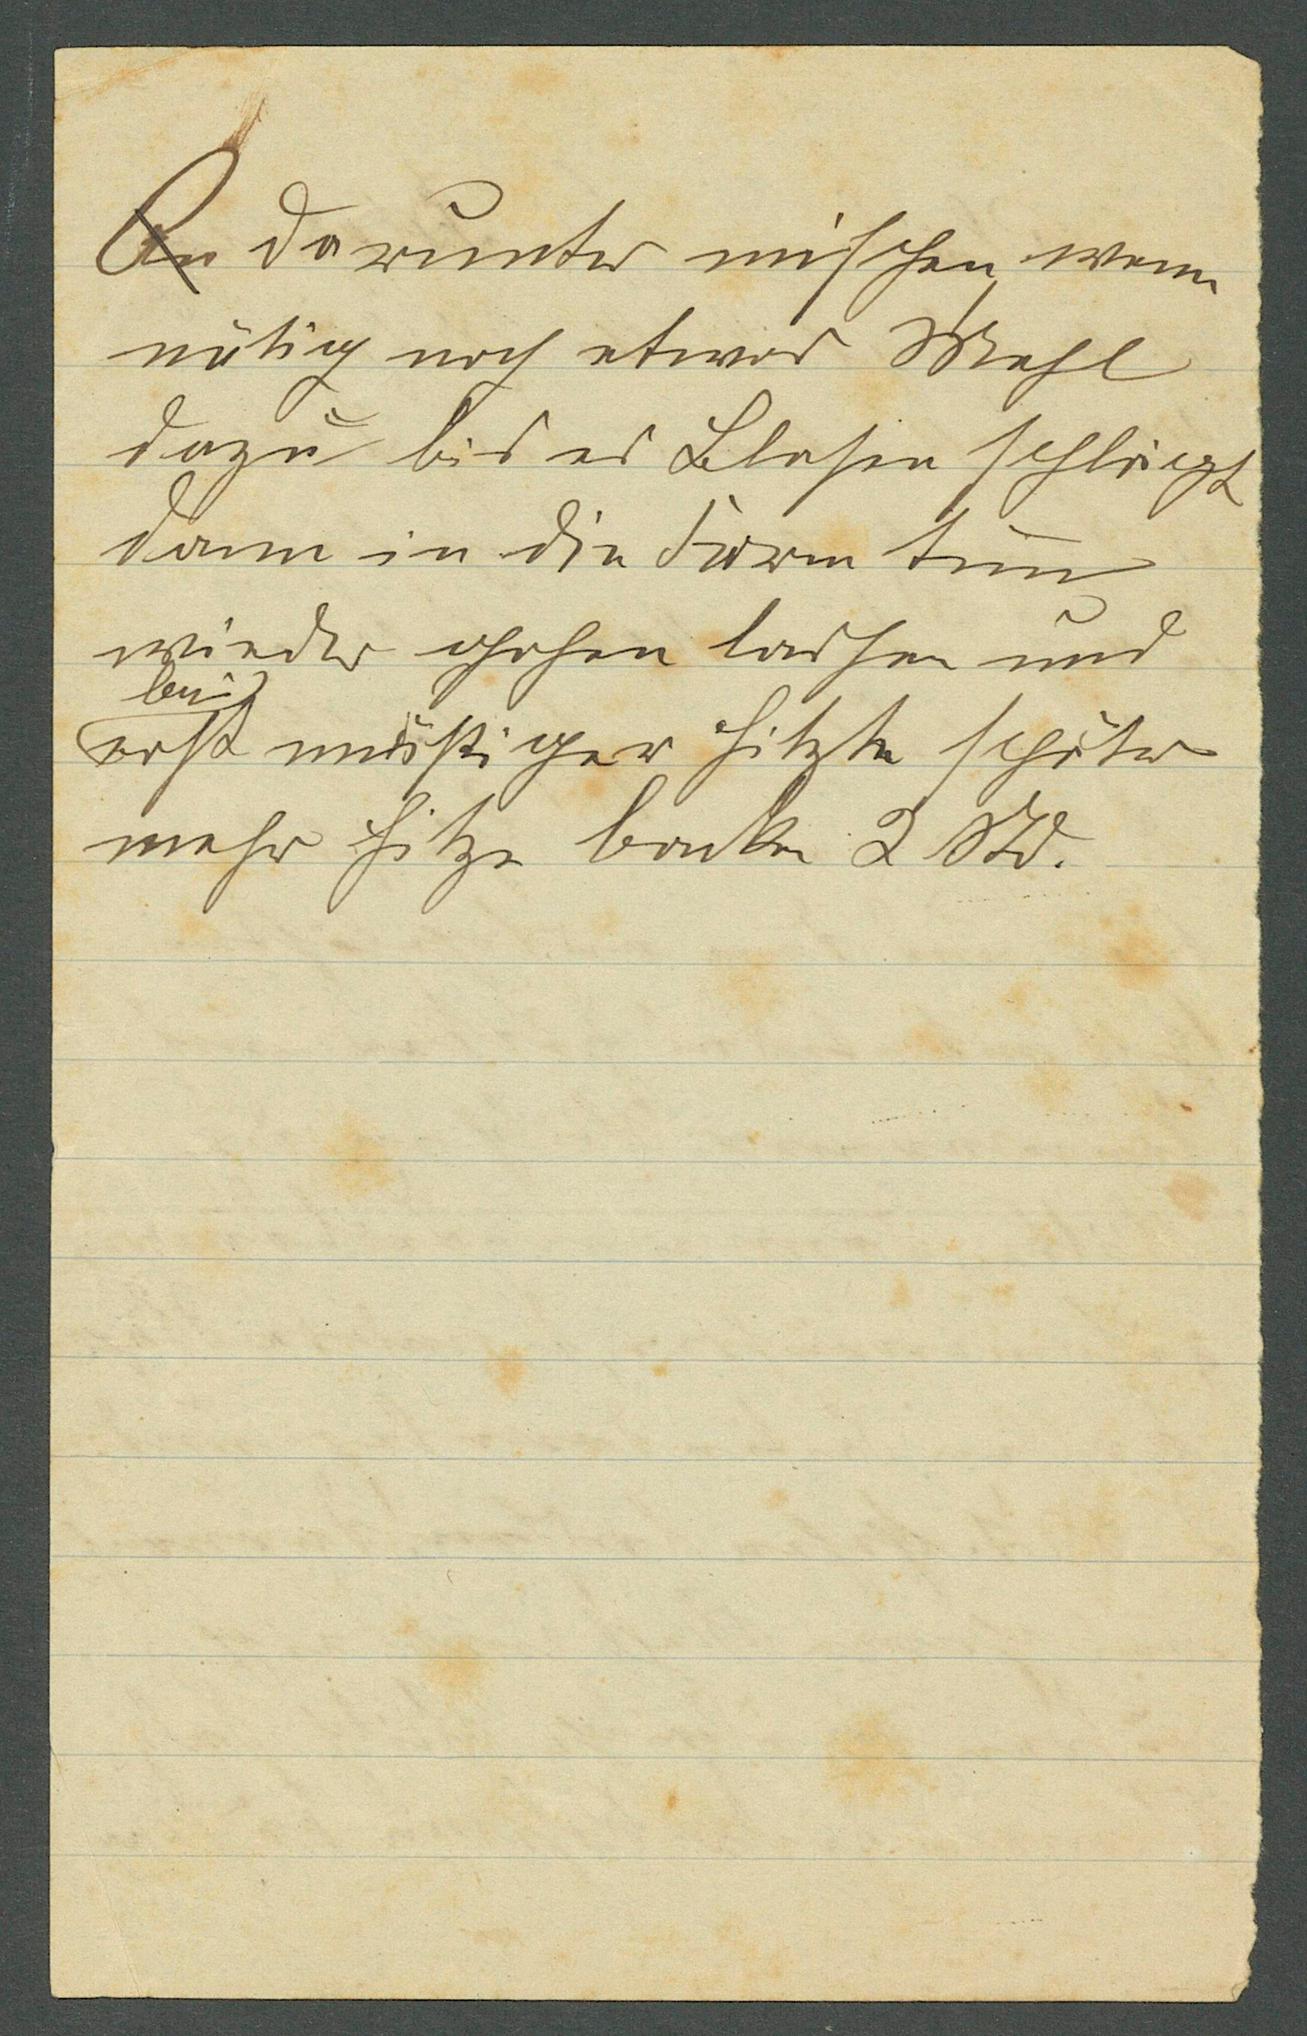 darunter mischen wenn
nötig noch etwas Mehl
dazu bis es Blasen schlägt
dann in die Form tun
wieder gehen lassen und
bei
erst mäßiger Hitze später
mehr Hitze backen 2 Std.